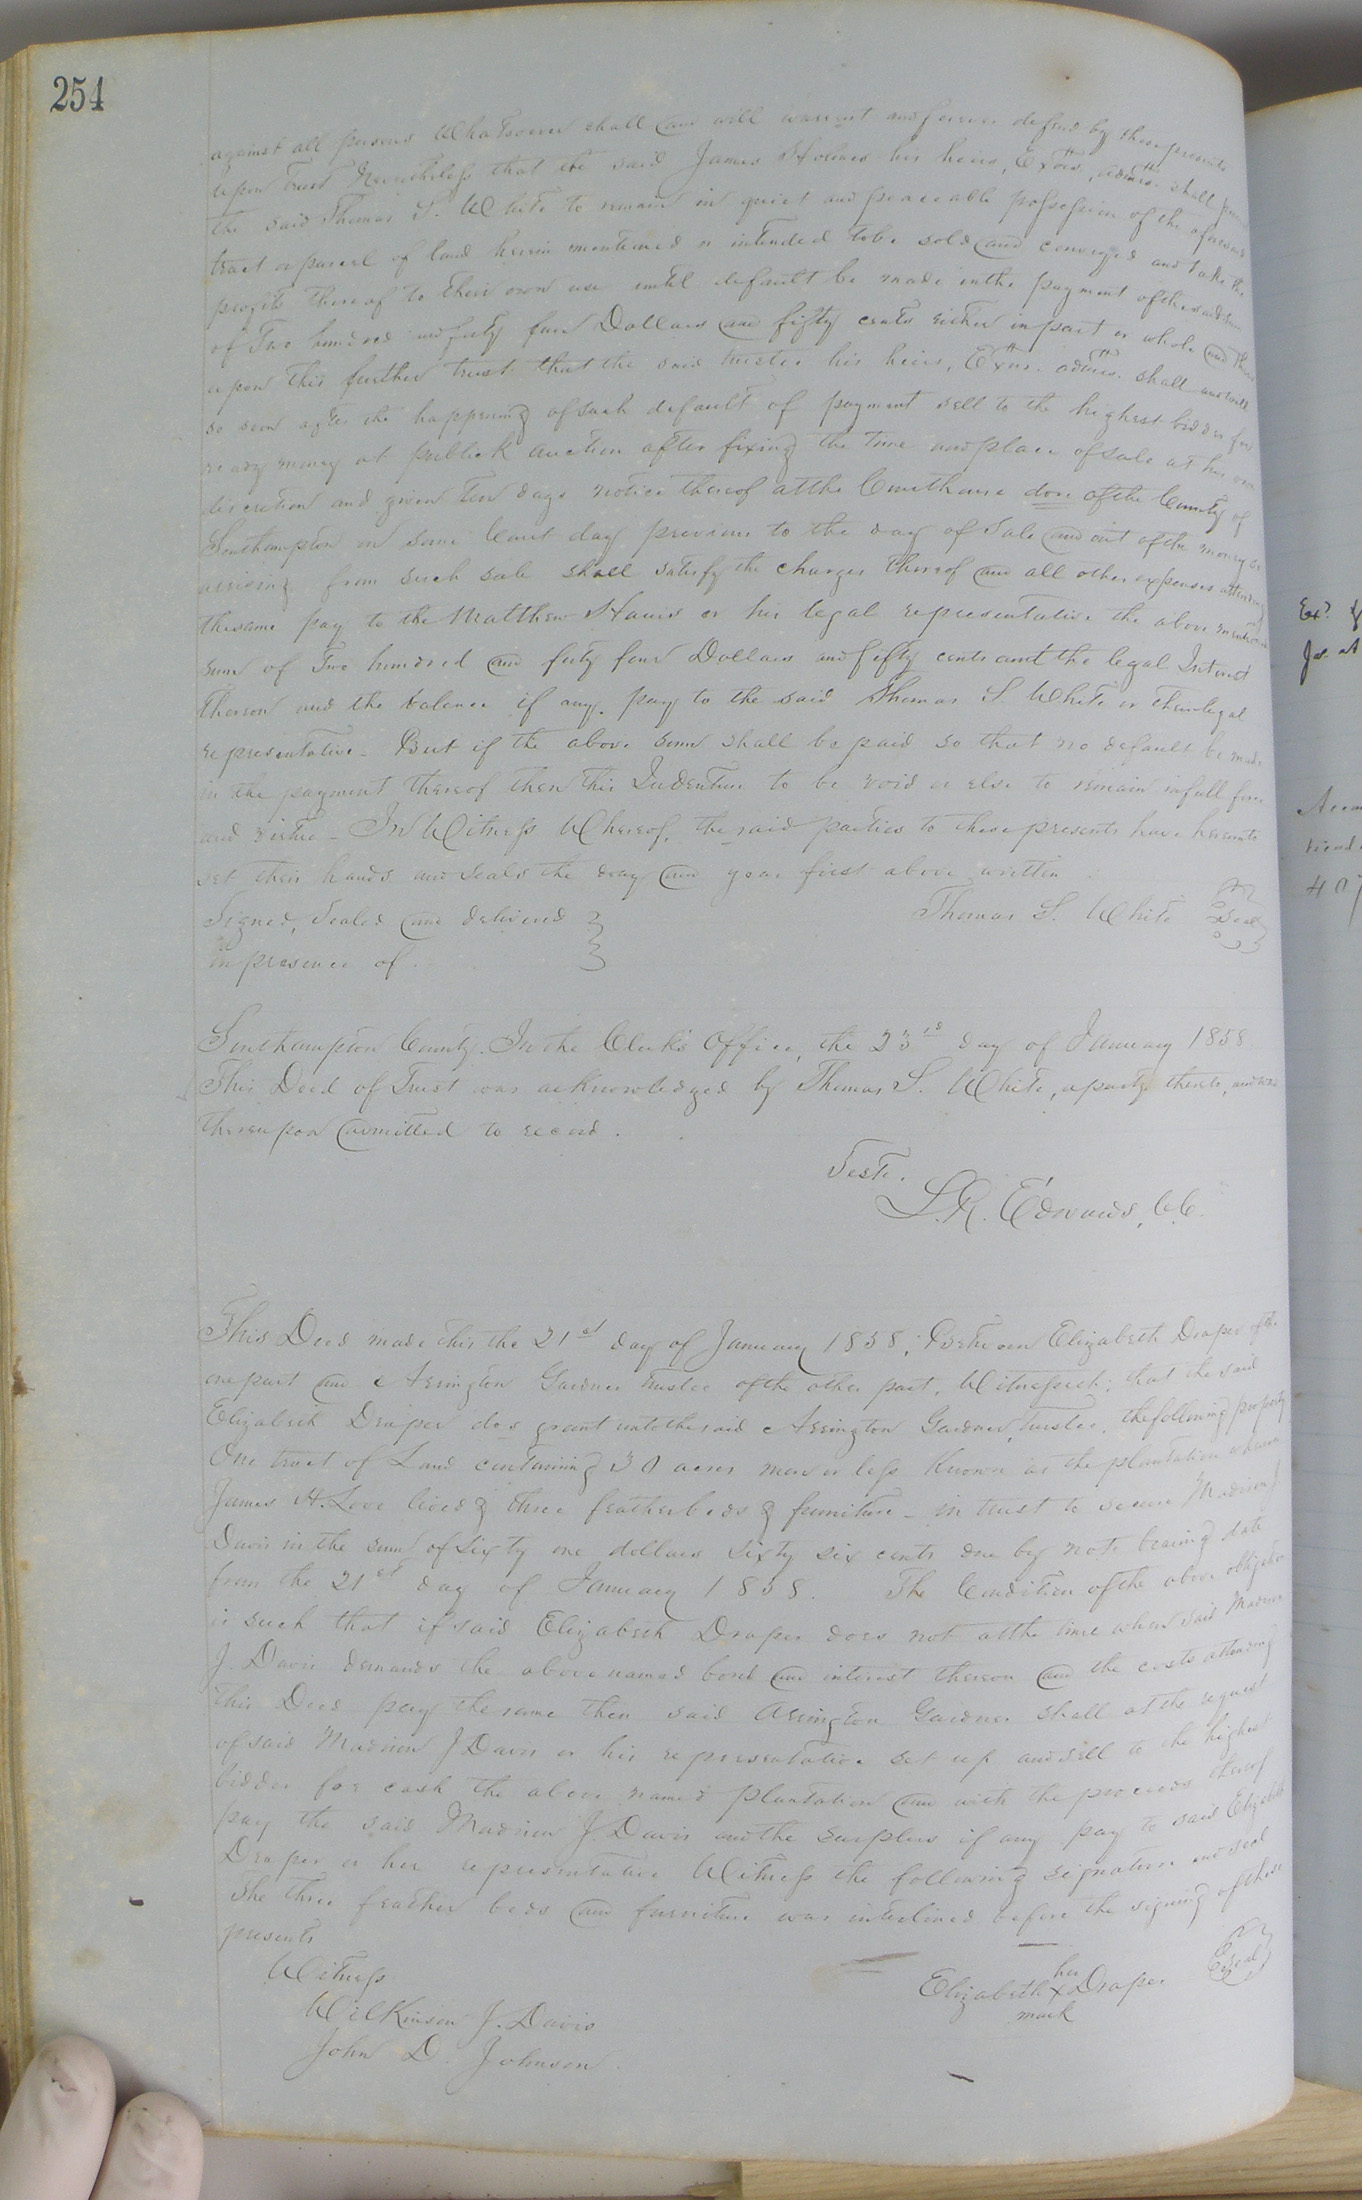 254
against all persons Whatsoever shall and will warrent and forever defend by these presents
Upon Trust Nevertheless that the said James Holmes his heirs, Extors, admrs. shall permit
the said Thomas S. White to remain in quiet and peaceable possession of the aforesaid
tract or parcel of land herein mentioned or intended to be sold and conveyed and take the
profits thereof to their own use until default be made in the payment of the said sum
of Two hundred and forty four Dollars and fifty cents either in part or whole and then
upon this further trust that the said trustee his heirs, Exrs. admrs. shall and will
so soon after the happening of such default of payment sell to the highest bidder for
ready money at publick auction after fixing the time and place of sale at his own
discretion and given Ten days notice thereof at the Courthouse dore of the County of
Southampton on some Court day previous to the day of Sale and out of the money
arrising from such sale shall satisfy the charges thereof and all other expenses attending
the same pay to the Matthew Harris or his legal representative the above mentioned
sum of Two hundred and forty four Dollars and fifty cents and the legal Interest
thereon and the balance if any pay to the said Thomas S White or their legal
representative - But if the above sum shall be paid so that no default be made
in the payment thereof then this Indenture to be void or else to remain in full force
and virtue - In Witness Whereof, the said parties to these presents have hereunto
set their hands and seals the day and year first above written
Signed, Sealed and delivered } Thomas S. White {Seal}
in presence of .
Southampton County. In the Clerk's Office, the 23rd day of January 1858
This Deed of Trust was acknowledged by Thomas S. White, a party thereto, and was
thereupon admitted to record .
Teste.
L. R. Edwards, C.C.
This Deed made this the 21st day of January 1858; Between Elizabeth Draper of the
one part and Arrington Gardner trustee of the other part, Witnesseth; that the said
Elizabeth Draper dos grant unto the said Arrington Gardner, trustee, the following property
One tract of Land containing 30 acres more or less Known as the plantation whereon
James H. Love lived & three featherbeds & furniture - in trust to secure Madison J
Davis in the sum of sixty one dollars sixty six cents due by note bearing date
from the 21st day of January 1858. The Condition of the above obligation
is such that if said Elizabeth Draper does not at the time when said Madison
J. Davis demands the above named bond and interest thereon and the costs attending
this Deed pay the same then said Arrington Gardner shall at the request
of said Madison J Davis or his representative set up and sell to the highest
bidder for cash the above named plantation and with the proceeds thereof
pay the said Madison J Davis and the surplus if any pay to said Elizabeth
Draper or her representative Witness the following signature and seal
The three feather beds and furniture was interlined before the signing of these
presents
Witness
Elizabeth her X mark Draper {Seal}
Wilkinson J. Davis
John D. Johnson .